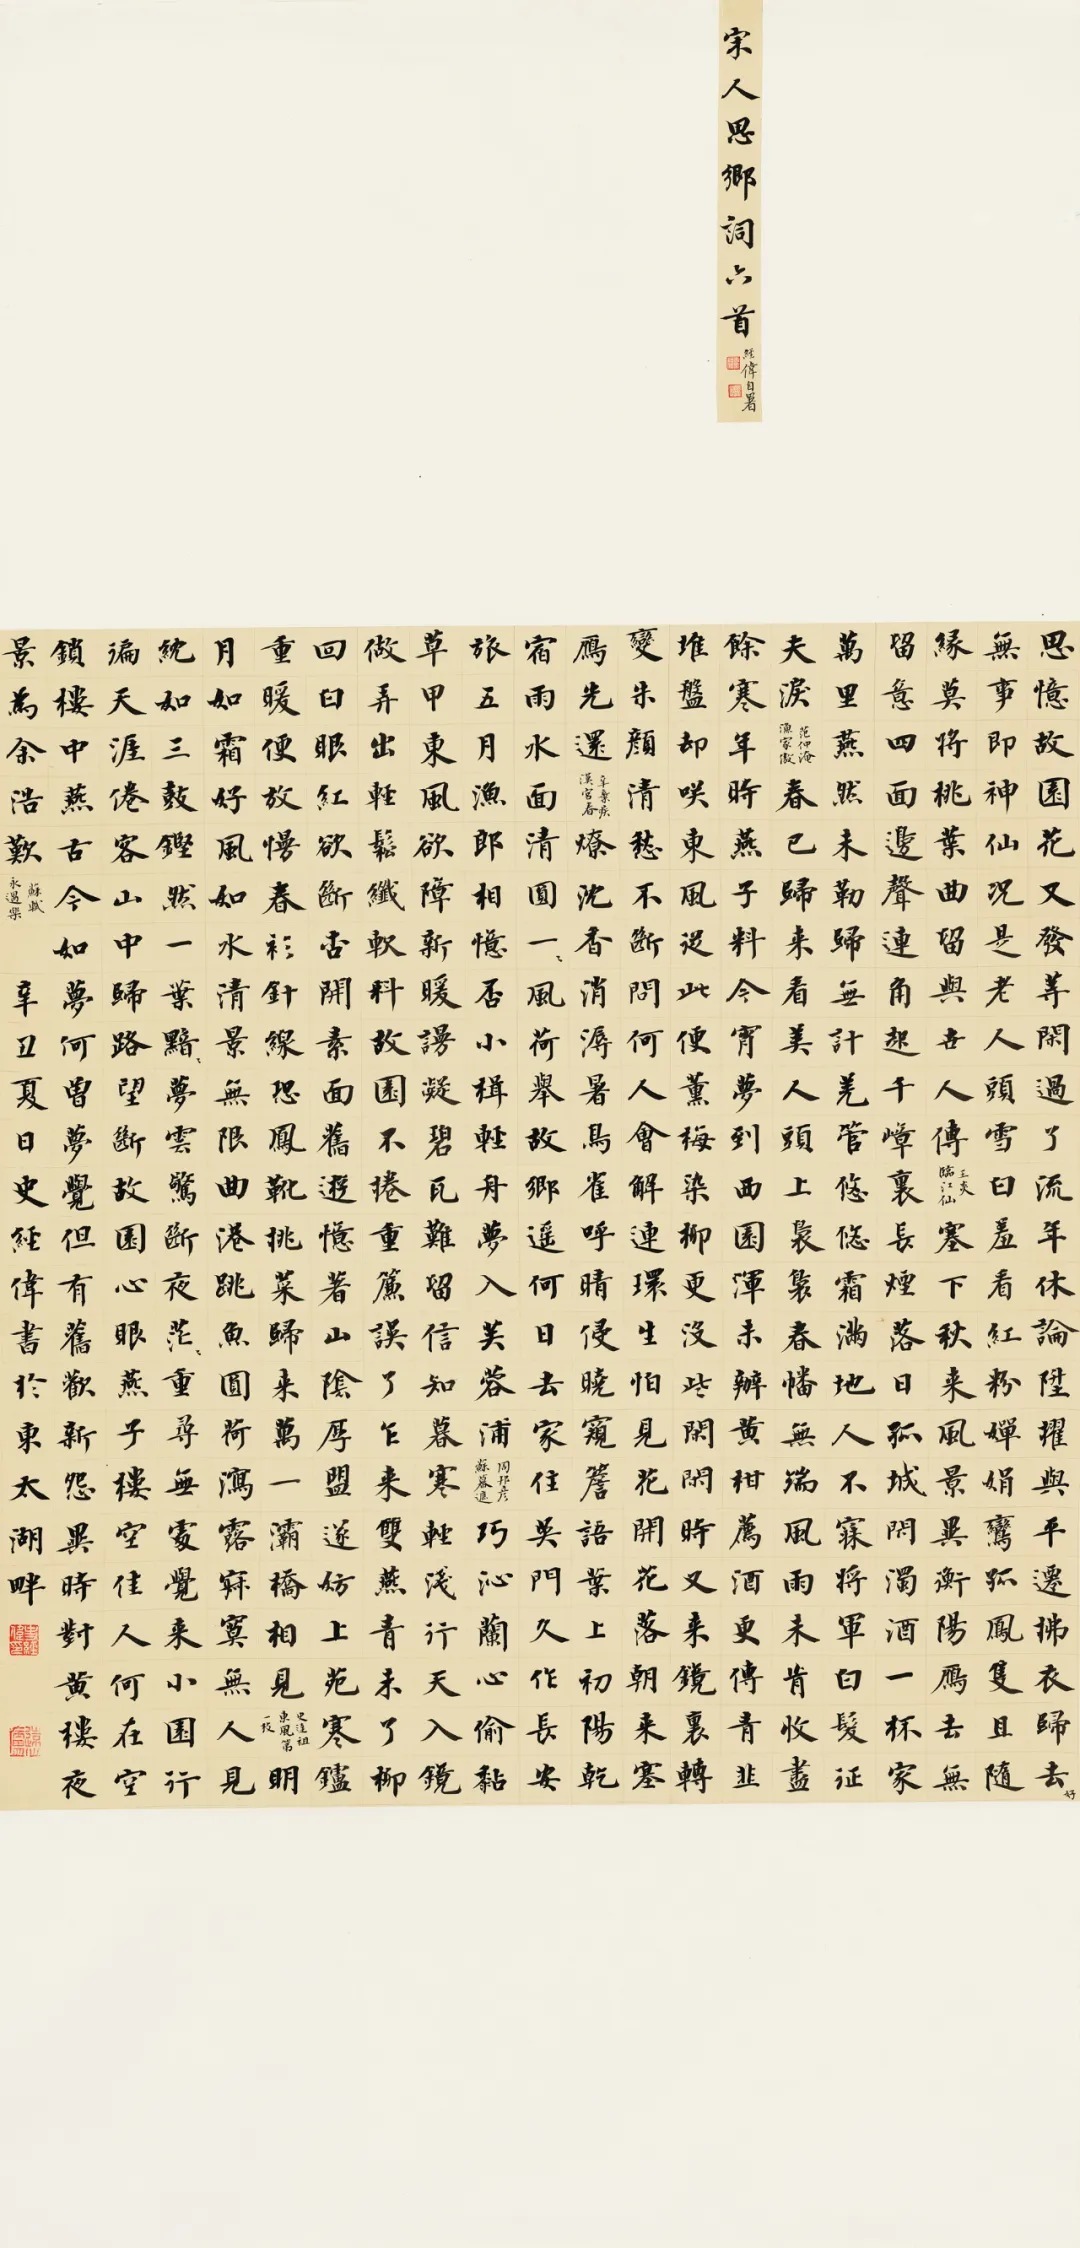 宋人思鄉詞六首
經偉自署
思憶故園花又發等閑過了流年休論陞擢與平遷拂衣歸去好
無事即神仙況是老人頭雪白羞看紅粉嬋娟鸞孤鳳隻且隨
緣莫將桃葉曲留與世人傳王炎臨江仙塞下秋來風景異衡陽鴈去無
留意四面邊聲連角起千嶂裏長煙落日孤城閉濁酒一杯家
萬里燕然未勒歸無計羌管悠悠霜滿地人不寐將軍白髮征
夫淚范仲淹漁家傲春已歸來看美人頭上裊裊春幡無端風雨未肯收盡
餘寒年時燕子料今宵夢到西園渾未辦黃柑薦酒更傳青韭
堆盤却咲東風從此便薰梅染柳更沒些閑閑時又來鏡裏轉
變朱顏清愁不斷問何人會解連環生怕見花開花落朝來塞
鴈先還辛棄疾漢宮春燎沈香消溽暑鳥雀呼晴侵曉窺簷語葉上初陽乾
宿雨水面清圓一〻風荷舉故鄉遥何日去家住吳門久作長安
旅五月漁郎相憶否小楫輕舟夢入芙蓉浦周邦彥蘇幕遮巧沁蘭心偷黏
草甲東風欲障新暖謾凝碧瓦難留信知暮寒輕淺行天入鏡
做弄出輕鬆纖軟料故園不捲重簾誤了乍來雙燕青未了柳
回白眼紅欲斷杏開素面舊遊憶著山陰厚盟遂妨上苑寒鑪
重暖便放慢春衫針線恐鳳靴挑菜歸來萬一灞橋相見史達祖東風第一枝明
月如霜好風如水清景無限曲港跳魚圓荷瀉露寂寞無人見
紞如三鼓鏗然一葉黯〻夢雲驚斷夜茫〻重尋無處覺來小園行
遍天涯倦客山中歸路望斷故園心眼燕子樓空佳人何在空
鎖樓中燕古今如夢何曾夢覺但有舊歡新怨異時對黃樓夜
景為余浩歎蘇軾永遇樂 辛丑夏日史經偉書於東太湖畔